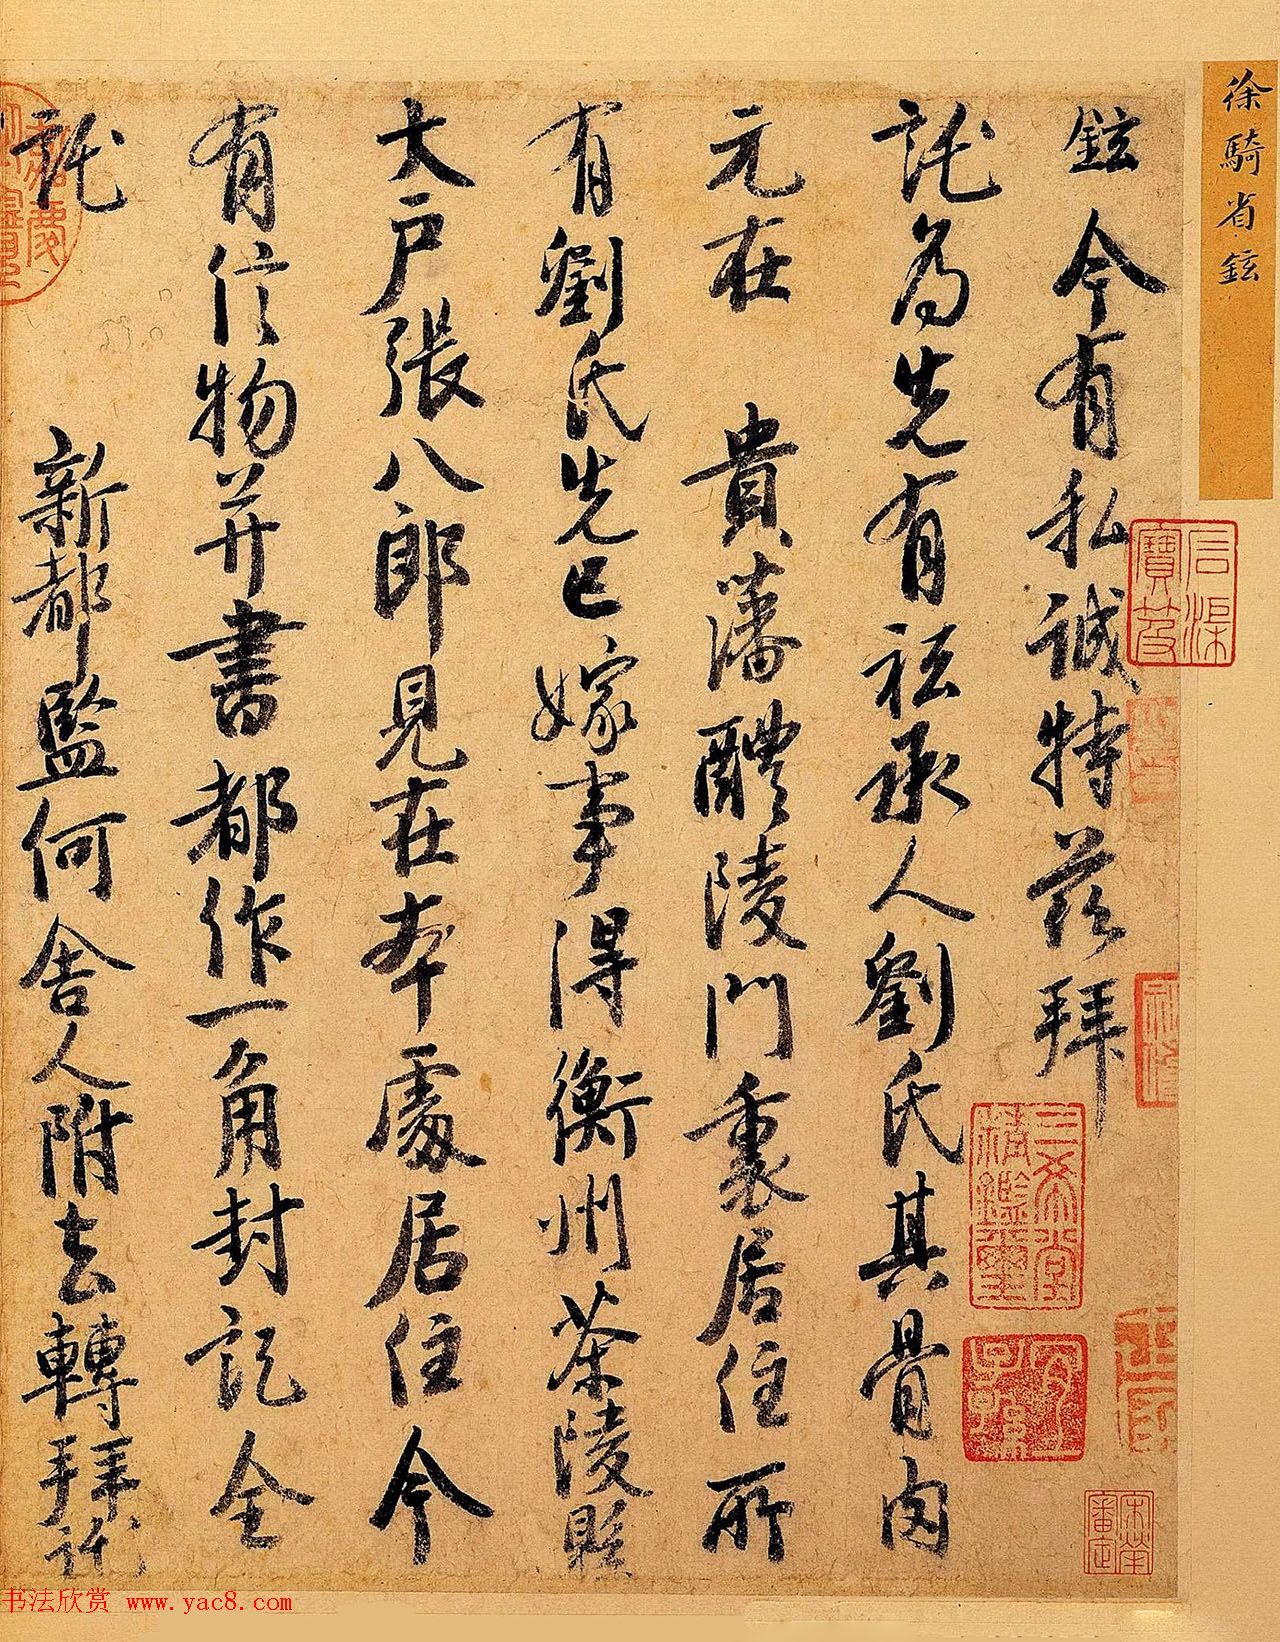 徐騎省鉉
鉉今有私誠特茲拜
託為先有祗承人劉氏其骨肉
元在 貴藩醴陵門裏居住所
有劉氏先已嫁事得衡州茶陵縣
大戶張八郎見在本處居住今
有信物并書都作一角封記全
託
新都監何舍人附去轉拜託
石渠寶笈
三希堂精鑑璽
宋犖審定
书法欣赏 www.yac8.com